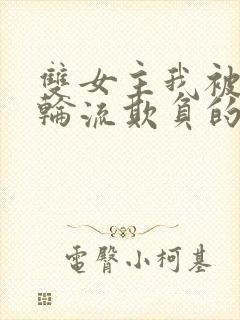 雙女主我被
輪流欺負的
電臀小柯基